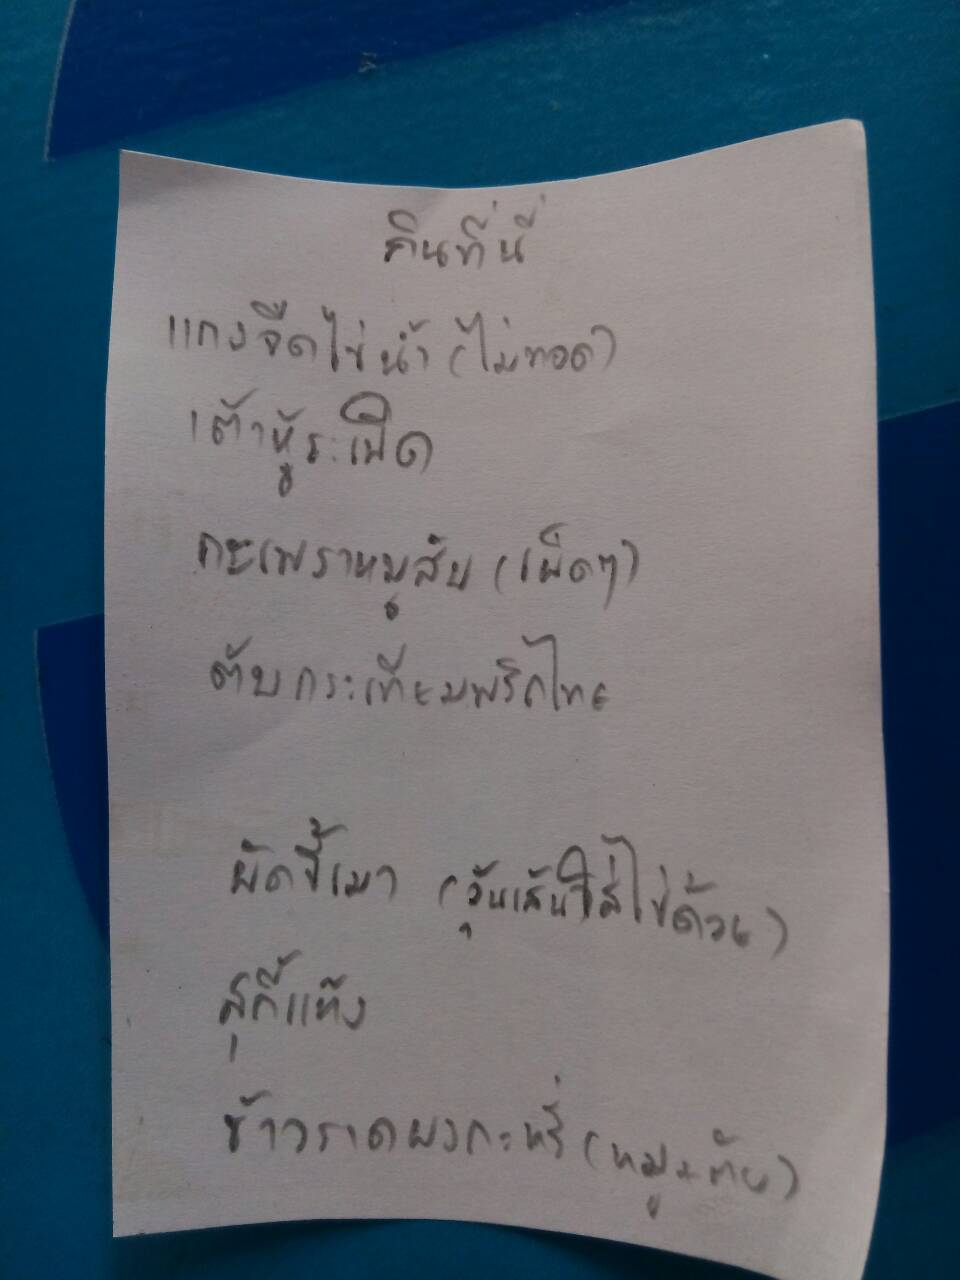 กินที่นี่
แกงจืดไข่น้ำ (ไม่ทอด)
เต้าหู้ระเบิด
กะเพราหมูสับ (เผ็ดๆ)
ตับกระเทียมพริกไทย
ผัดขี้เมา (วุ้นเส้นใส่ไข่ด้วย)
สุกี้แห้ง
ข้าวราดผงกะหรี่ (หมู+ตับ)